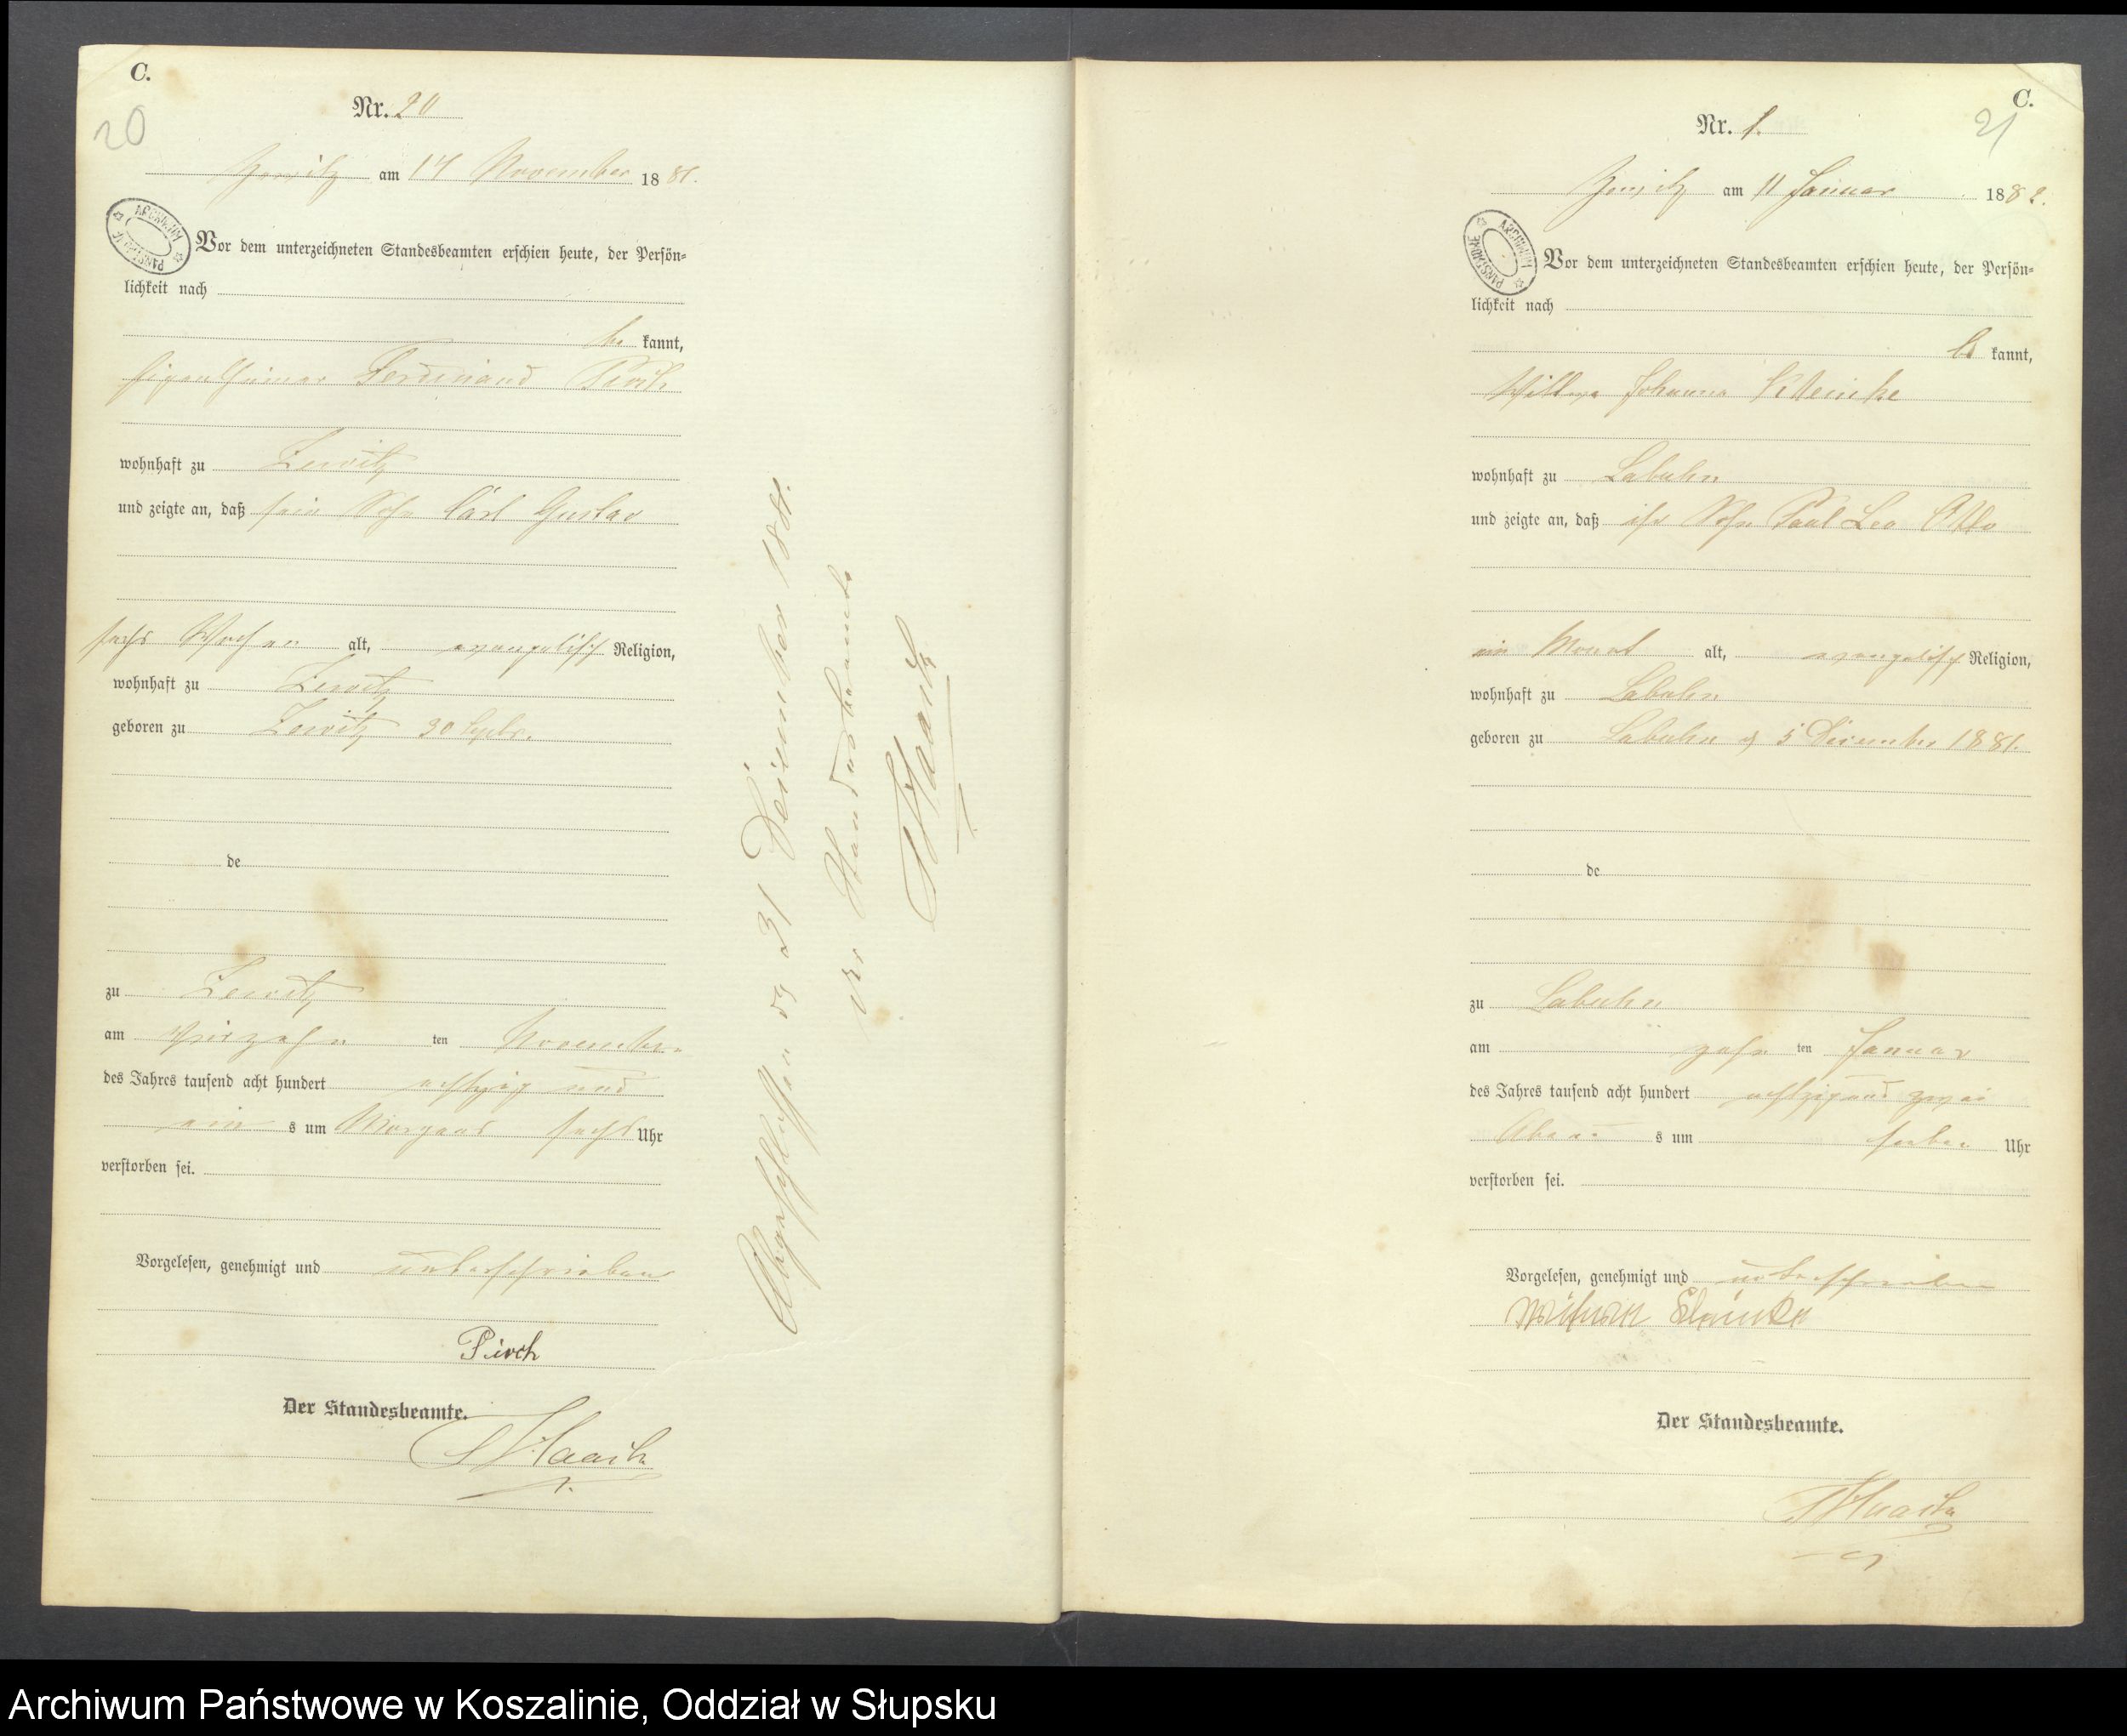 C.
20
Nr. 20
Zewitz am 17 November 1881.
ARCHIWUM PAŃSTWOWE
Vor dem unterzeichneten Standesbeamten erschien heute, der Persön=
lichkeit nach
be kannt,
Eigenthümer Ferdinand Pirch
wohnhaft zu Zewitz
und zeigte an, daß sein Sohn Carl Gustav
sechs Wochen alt, evangelisch Religion,
wohnhaft zu Zewitz
geboren zu Zewitz 30 Septbr.
de
zu Zewitz
am vierzehn ten November
des Jahres tausend acht hundert achtzig und
ein s um Morgens sechs Uhr
verstorben sei.
Vorgelesen, genehmigt und unterschrieben
Pirch
Der Standesbeamte.
Abgeschlossen den 31 Dezember 1881.
Der Standesbeamte
C.
21
Nr. 1.
Zewitz am 11 Januar 1882.
ARCHIWUM PAŃSTWOWE
Vor dem unterzeichneten Standesbeamten erschien heute, der Persön=
lichkeit nach
be kannt,
Wittwe Johanna
wohnhaft zu Labuhn
und zeigte an, daß ihr Sohn Paul Leo Otto
ein Monat alt, evangelisch Religion,
wohnhaft zu Labuhn
geboren zu Labuhn d 5 Dezember 1881.
de
zu Labuhn
am zehn ten Januar
des Jahres tausend acht hundert achtzig und zwei
Abend s um sieben Uhr
verstorben sei.
Vorgelesen, genehmigt und unterschrieben
Der Standesbeamte.
Archiwum Państwowe w Koszalinie, Oddział w Słupsku